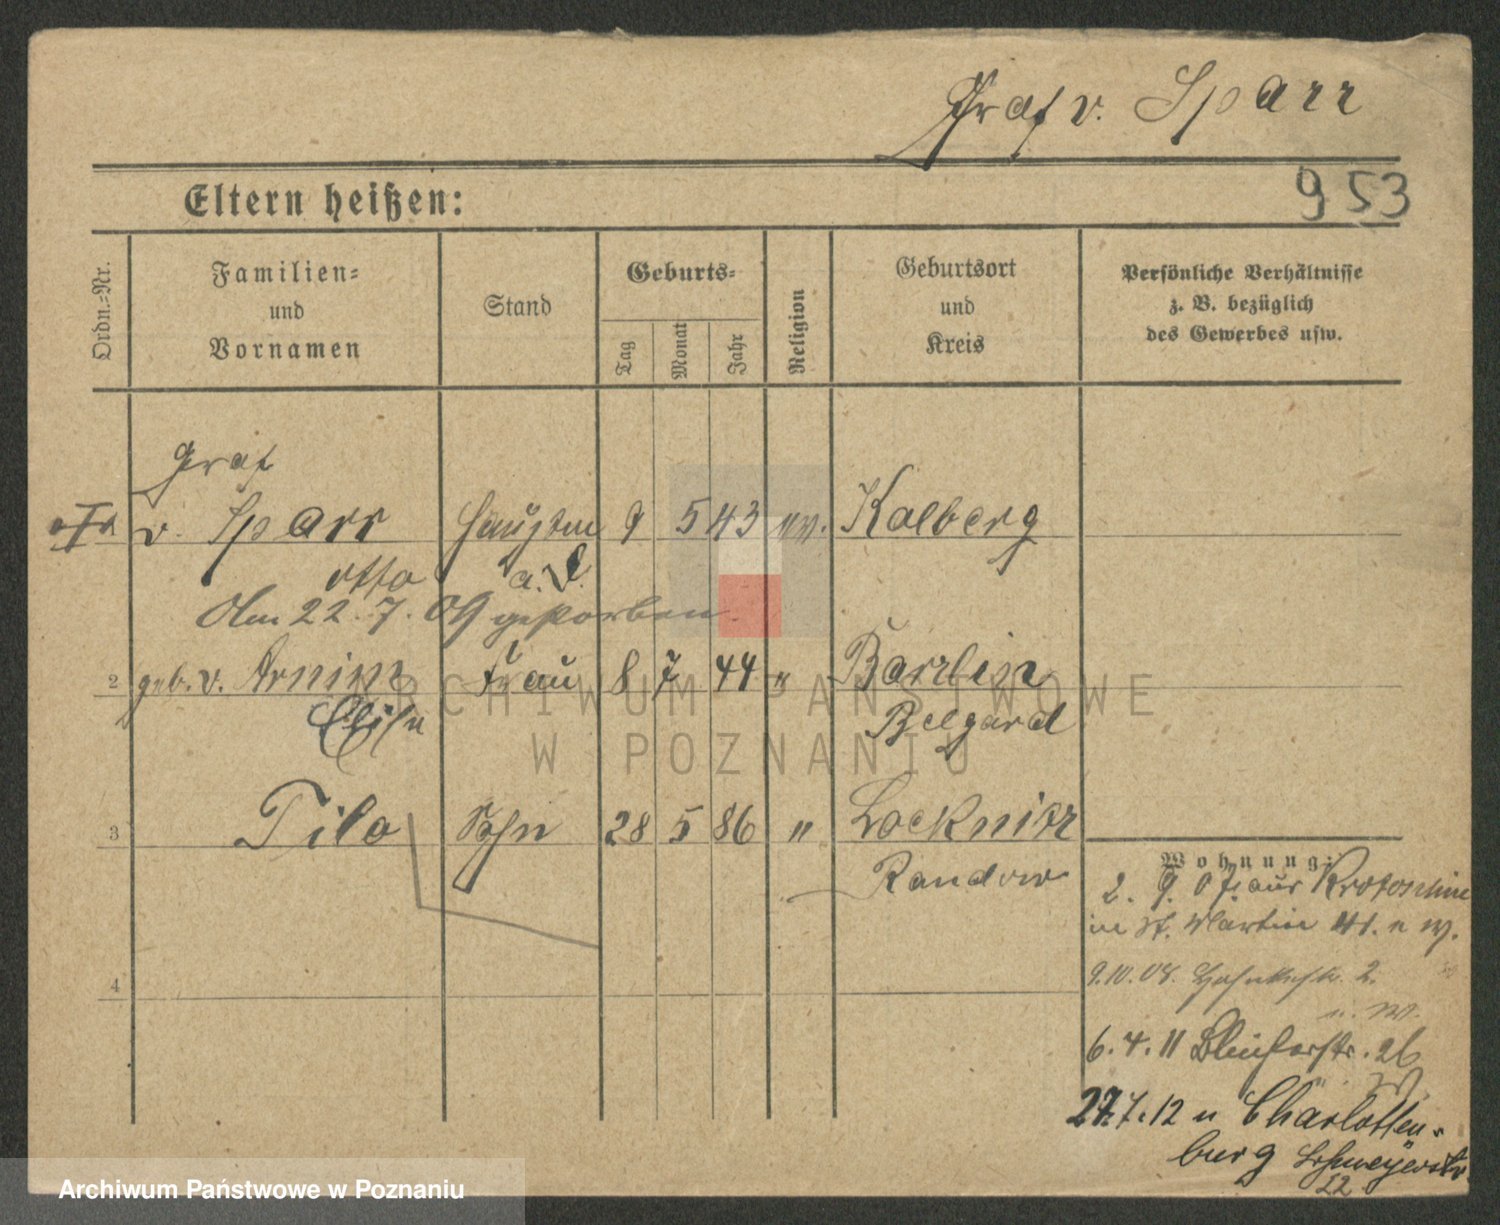 Graf v. Sparr
953
Eltern heißen:
Ordn.-Nr.
Familien-
und
Vornamen
Stand
Geburts-
Tag
Monat
Jahr
Religion
Geburtsort
und
Kreis
Persönliche Verhältnisse
z. B. bezüglich
des Gewerbes usw.
Graf
v. Sparr Hauptm 9 5 43 ev. Kolberg
Otto a. D.
Am 22.7.09 gestorben.
2 geb. v. Arnim Frau 8 7 44 " Barzlin
Elise Belgard
3 Tilo Sohn 28 5 86 " Locknitz
Randow
4
Wohnung:
2. 9. 07. aus Krotoschin
in St. Martin 41. n W.
9.10.08. 2.
n. W.
6.4.11 26
W
27.7.12 n Charlotten-
burg
22
ARCHIWUM PAŃSTWOWE
W POZNANIU
Archiwum Państwowe w Poznaniu